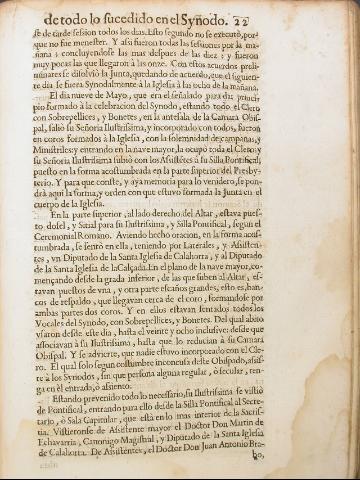 de todo lo sucedido en el Synodo. 22
se de tarde session todos los dias. Esto segundo no se executò, por-
que no fue menester. Y assi fueron todas las sessiones por la ma-
ñana; concluyendose las mas despues de las diez; y fueron
muy pocas las que llegaron à las onze. Con estos acuerdos preli-
minares se disolviò la Junta, quedando de acuerdo, que el siguien-
te dia se fuera Synodalmente à la Iglesia à las ocho de la mañana.
El dia nueve de Mayo, que era el señalado para dar princi-
pio formado à la celebracion del Synodo, estando todo el Clero
con Sobrepellices, y Bonetes, en la antesala de la Camara Obis-
pal, saliò su Señoria Ilustrissima, y incorporado con todos, fueron
en coros formados à la Iglesia, con la solemnidad de campanas, y
Ministriles; y entrando en la nave mayor, la ocupò todo el Clero; y
su Señoria Ilustrissima subiò con los Asistētes à su Silla Pontifical,
puesto en la forma acostumbrada en la parte superior del Presby-
terio. Y para que conste, y aya memoria para lo venidero, se pon-
drà aqui la forma, y orden con que estuvo formada la Junta en el
cuerpo de la Iglesia.
En la parte superior, al lado derecho del Altar, estava pues-
to dosel, y Sitial para su Ilustrissima, y Silla Pontifical, segun el
Ceremonial Romano. Aviendo hecho oracion, en la forma acos-
tumbrada, se sentò en ella, teniendo por Laterales, y Asisten-
tes, vn Diputado de la Santa Iglesia de Calahorra, y al Diputado
de la Santa Iglesia de la Calçada. En el plano de la nave mayor, co-
mençando desde la grada inferior, de las que suben al Altar, es-
tavan puestos de vna, y otra parte escaños grandes, esto es, ban-
cos de respaldo, que llegavan cerca de el coro, formandose por
ambas partes dos coros. Y en ellos estavan sentados todos los
Vocales del Synodo, con Sobrepellices, y Bonetes. Del qual abito
vsaron desde este dia, hasta el veinte y ocho inclusive: desde que
associavan à su Ilustrissima, hasta que lo reducian à su Camara
Obispal. Y se advierte, que nadie estuvo incorporado con el Cle-
ro. El qual solo segun costumbre inconcusa deste Obispado, asis-
te à los Synodos, sin que persona alguna regular, ò secular, ten-
ga en èl entrada, ò asiento.
Estando prevenido todo lo necesario, su Ilustrissima se vistiò
de Pontifical, entrando para ello desde la Silla Pontifical al Secre-
tario, ò Sala Capitular, que està en lo mas interior de la Sacris-
tia. Vistieronse de Asistente mayor el Doctor Don Martin de
Echavarria, Canonigo Magistral, y Diputado de la Santa Iglesia
de Calahorra. De Asistentes, el Doctor Don Juan Antonio Bra-
bo,